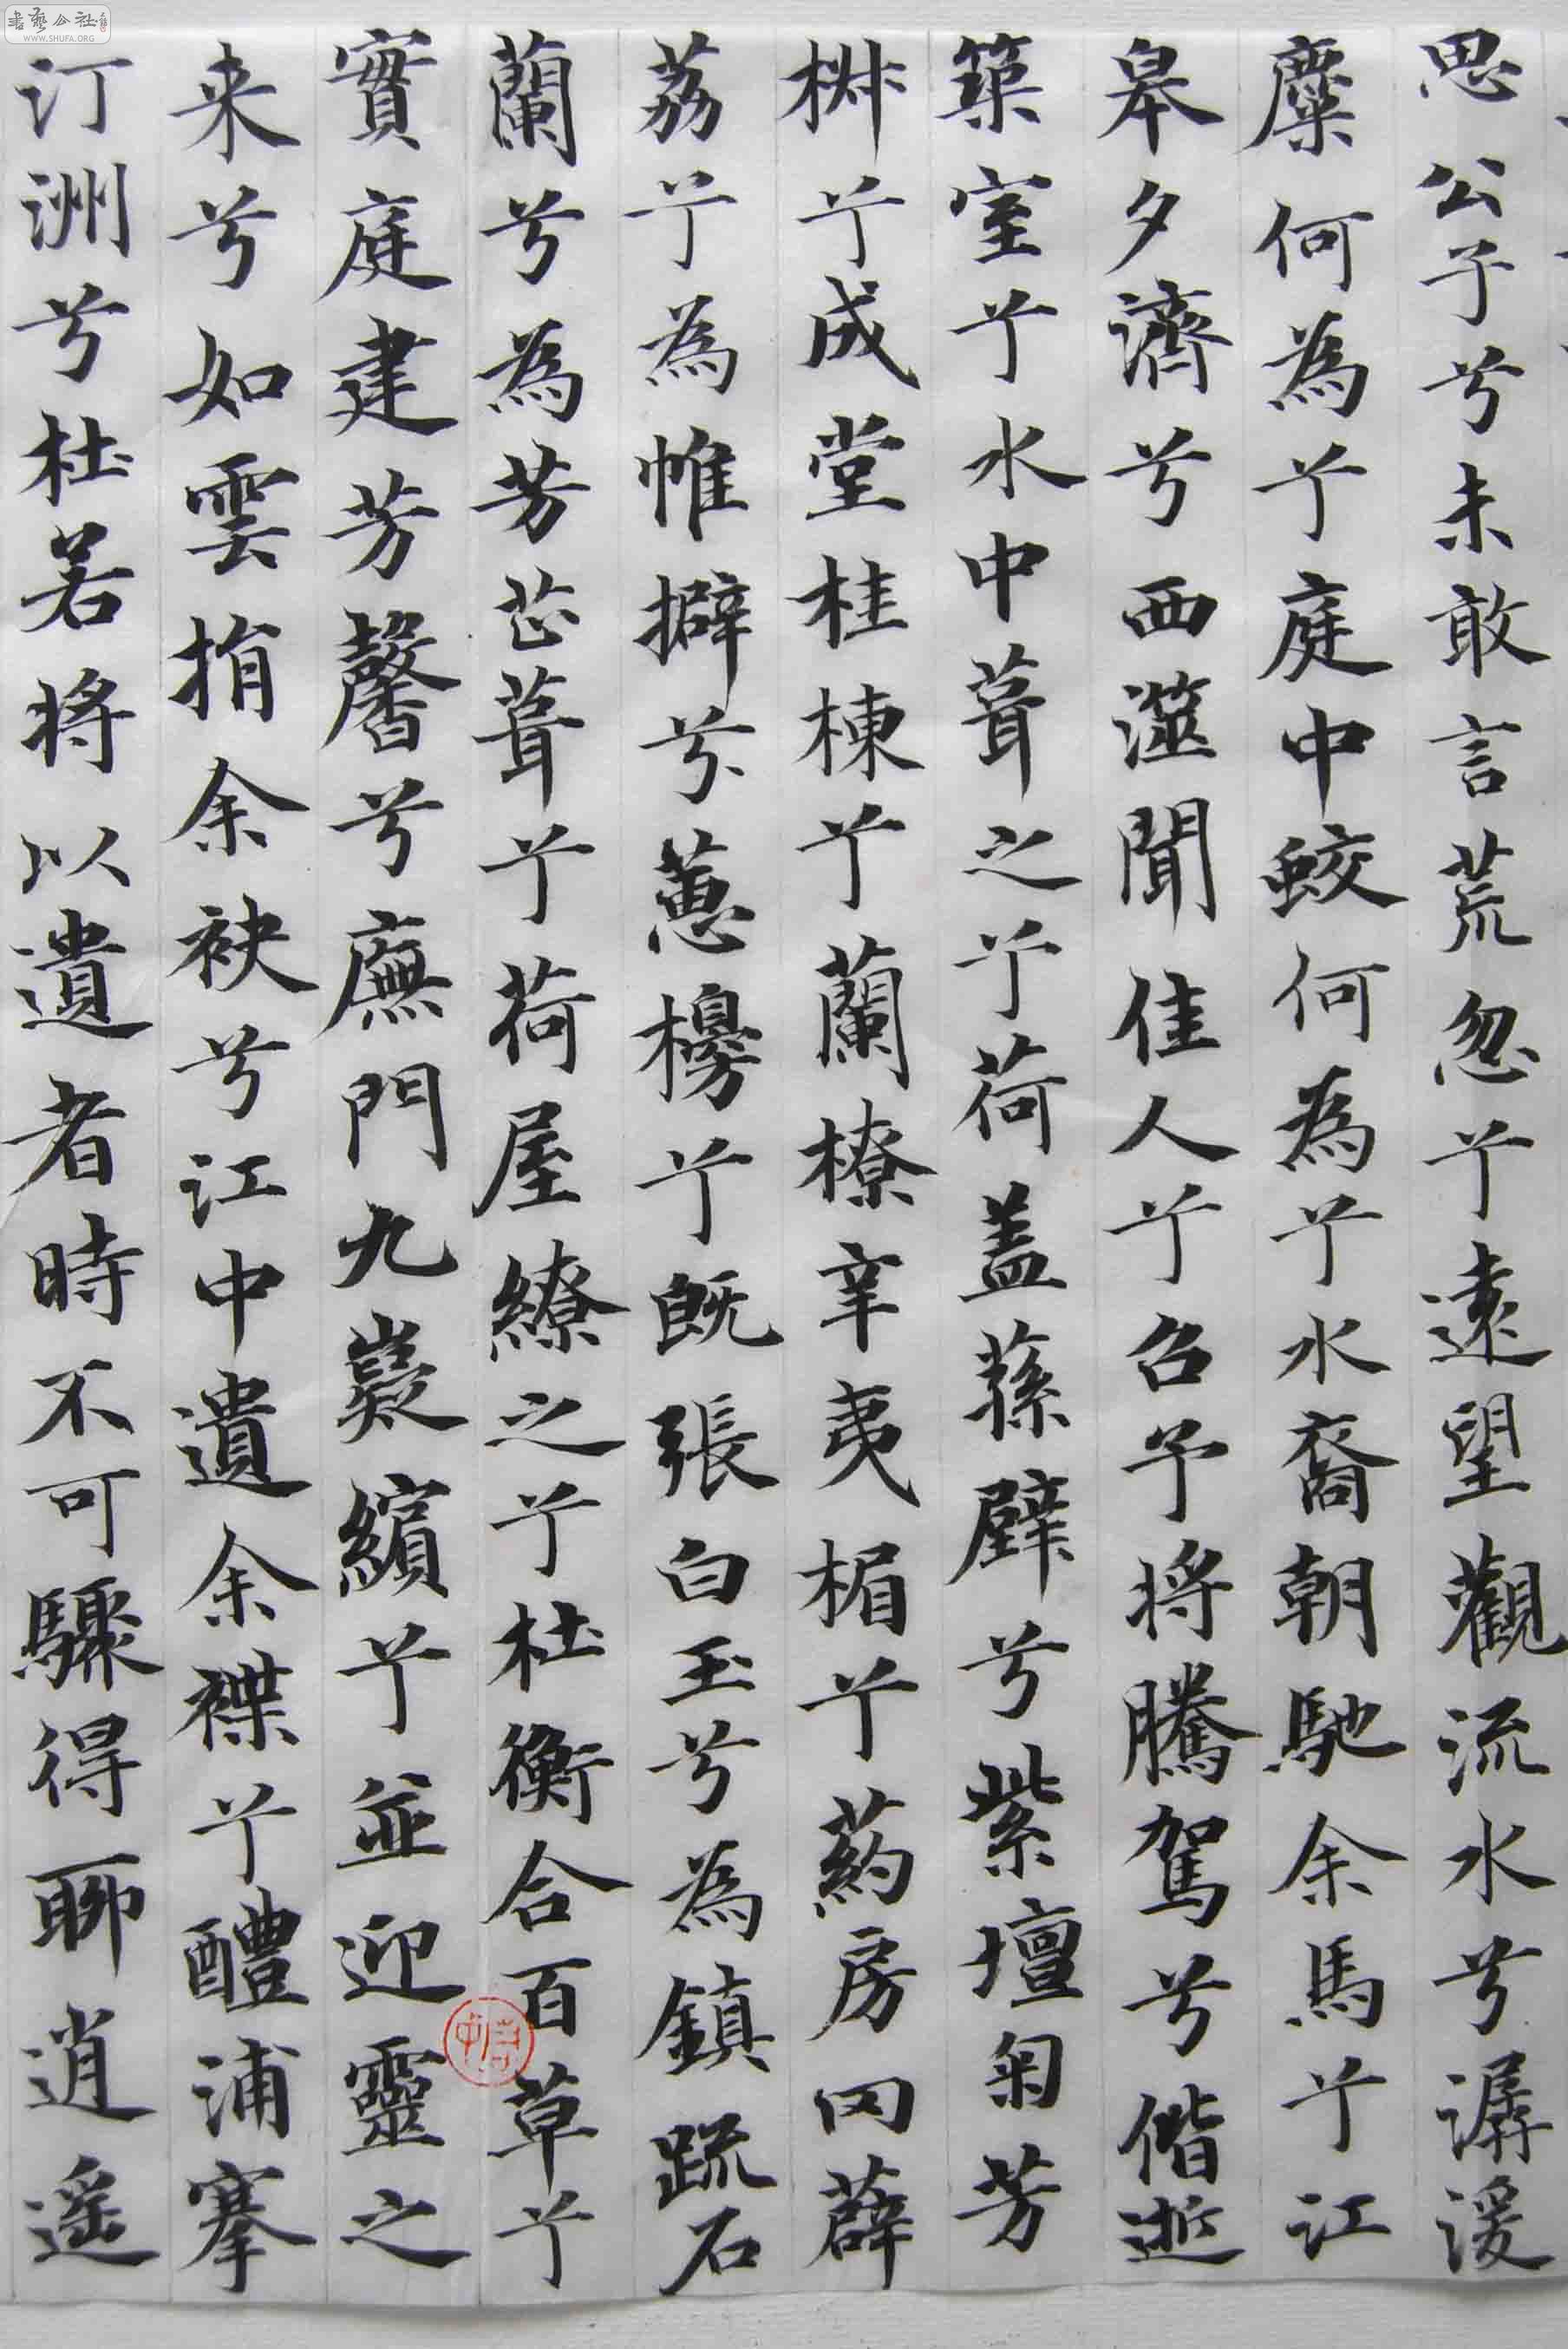 書藝公社
WWW.SHUFA.ORG
思公子兮未敢言荒忽兮遠望觀流水兮潺湲
麋何為兮庭中蛟何為兮水裔朝馳余馬兮江
皋夕濟兮西澨聞佳人兮召予將騰駕兮偕逝
築室兮水中葺之兮荷蓋蓀壁兮紫壇匊芳
椒兮成堂桂棟兮蘭橑辛夷楣兮葯房罔薜
荔兮為帷擗兮蕙櫋兮既張白玉兮為鎮疏石
蘭兮為芳芷葺兮荷屋繚之兮杜衡合百草兮
實庭建芳馨兮廡門九嶷繽兮並迎靈之
来兮如雲捐余袂兮江中遺余褋兮醴浦搴
汀洲兮杜若將以遺者時不可驟得聊逍遥